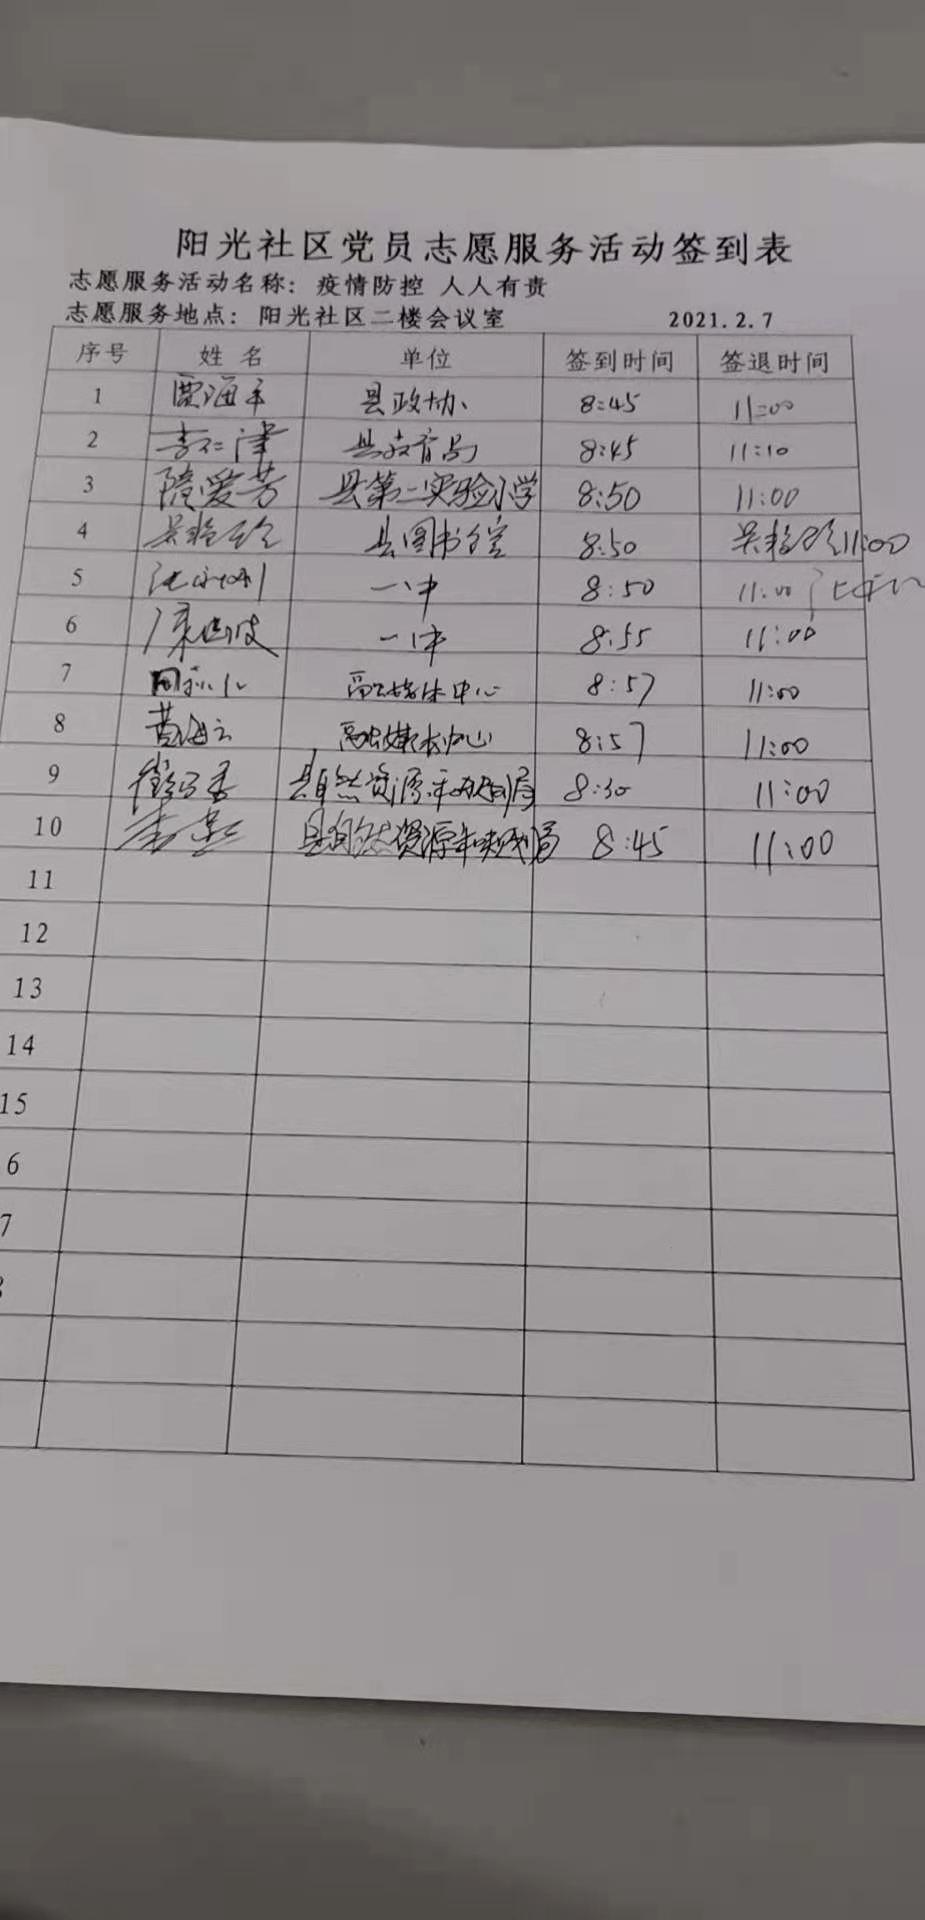 阳光社区党员志愿服务活动签到表
志愿服务活动名称：疫情防控 人人有责
志愿服务地点：阳光社区二楼会议室 2021.2.7
序号 姓名 单位 签到时间 签退时间
1 贾海平 县政协 8:45 11:00
2 李仁津 县教育局 8:45 11:10
3 隋爱芳 县第一实验小学 8:50 11:00
4 县图书馆 8:50 11:00
5 一中 8:50 11:00
6 一中 8:55 11:00
7 融媒体中心 8:57 11:00
8 黄海云 融媒体中心 8:57 11:00
9 县自然资源和规划局 8:30 11:00
10 县自然资源和规划局 8:45 11:00
11
12
13
14
15
6
7